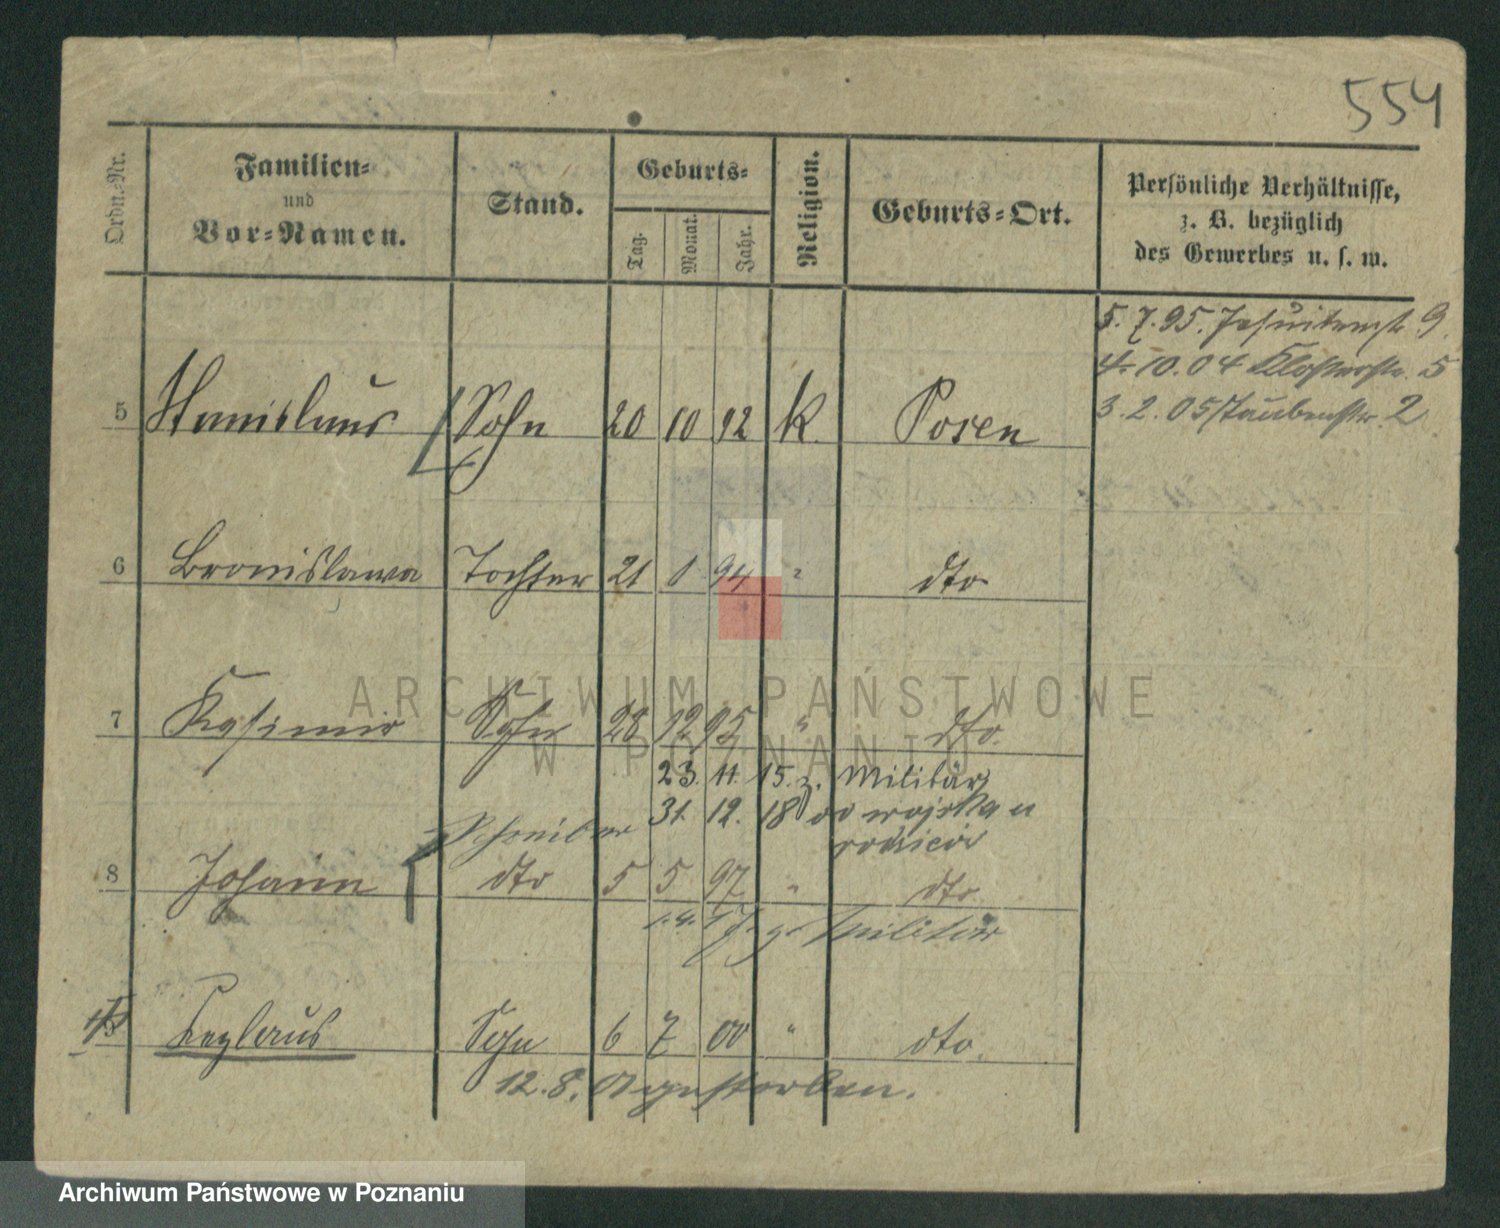 554
Ordn.-Nr.
Familien-
und
Vor-Namen.
Stand.
Geburts-
Tag.
Monat.
Jahr.
Religion.
Geburts-Ort.
Persönliche Verhältnisse,
z. B. bezüglich
des Gewerbes u. s. w.
5. 7. 95. Jesuitenst. 9
4. 10. 04 Klosterstr. 5
3. 2. 05 Taubenstr. 2
5 Stanislaus Sohn 20 10 92 k. Posen
6 Bronislawa Tochter 21 1 94 " dto
7 Kasimir Sohn 28 12 95 " dto.
23. 11. 15. z. Militär
31. 12. 18 do wojska u
rodziców
Schreiber
8 Johann dto 5 5 97 " dto
1. 4. 17. z. Militär
9 Ceslaus Sohn 6 7 00 " dto.
12. 8. 01 gestorben.
ARCHIWUM PAŃSTWOWE
W POZNANIU
Archiwum Państwowe w Poznaniu